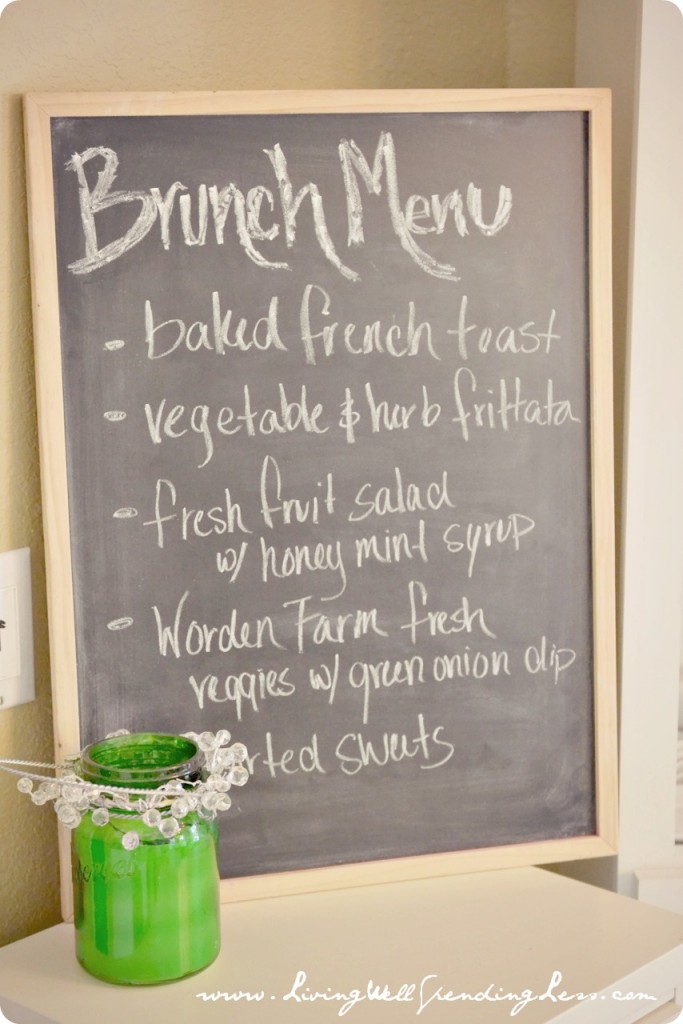 Brunch Menu
- baked french toast
- vegetable & herb frittata
- fresh fruit salad
w/ honey mint syrup
- Worden Farm fresh
veggies w/ green onion dip
sweets
www.LivingWellSpendingLess.com